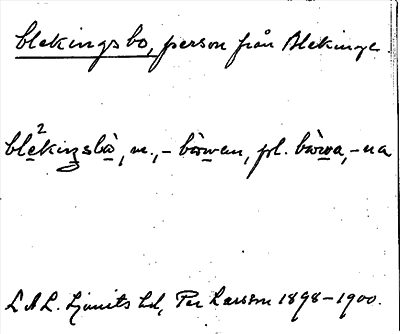 blekingsbo, person från Blekinge
blekingsbò, m., -bòwan, pl. bòwa, -na
L A L. Ljunits hd, Per Larsson 1898-1900.